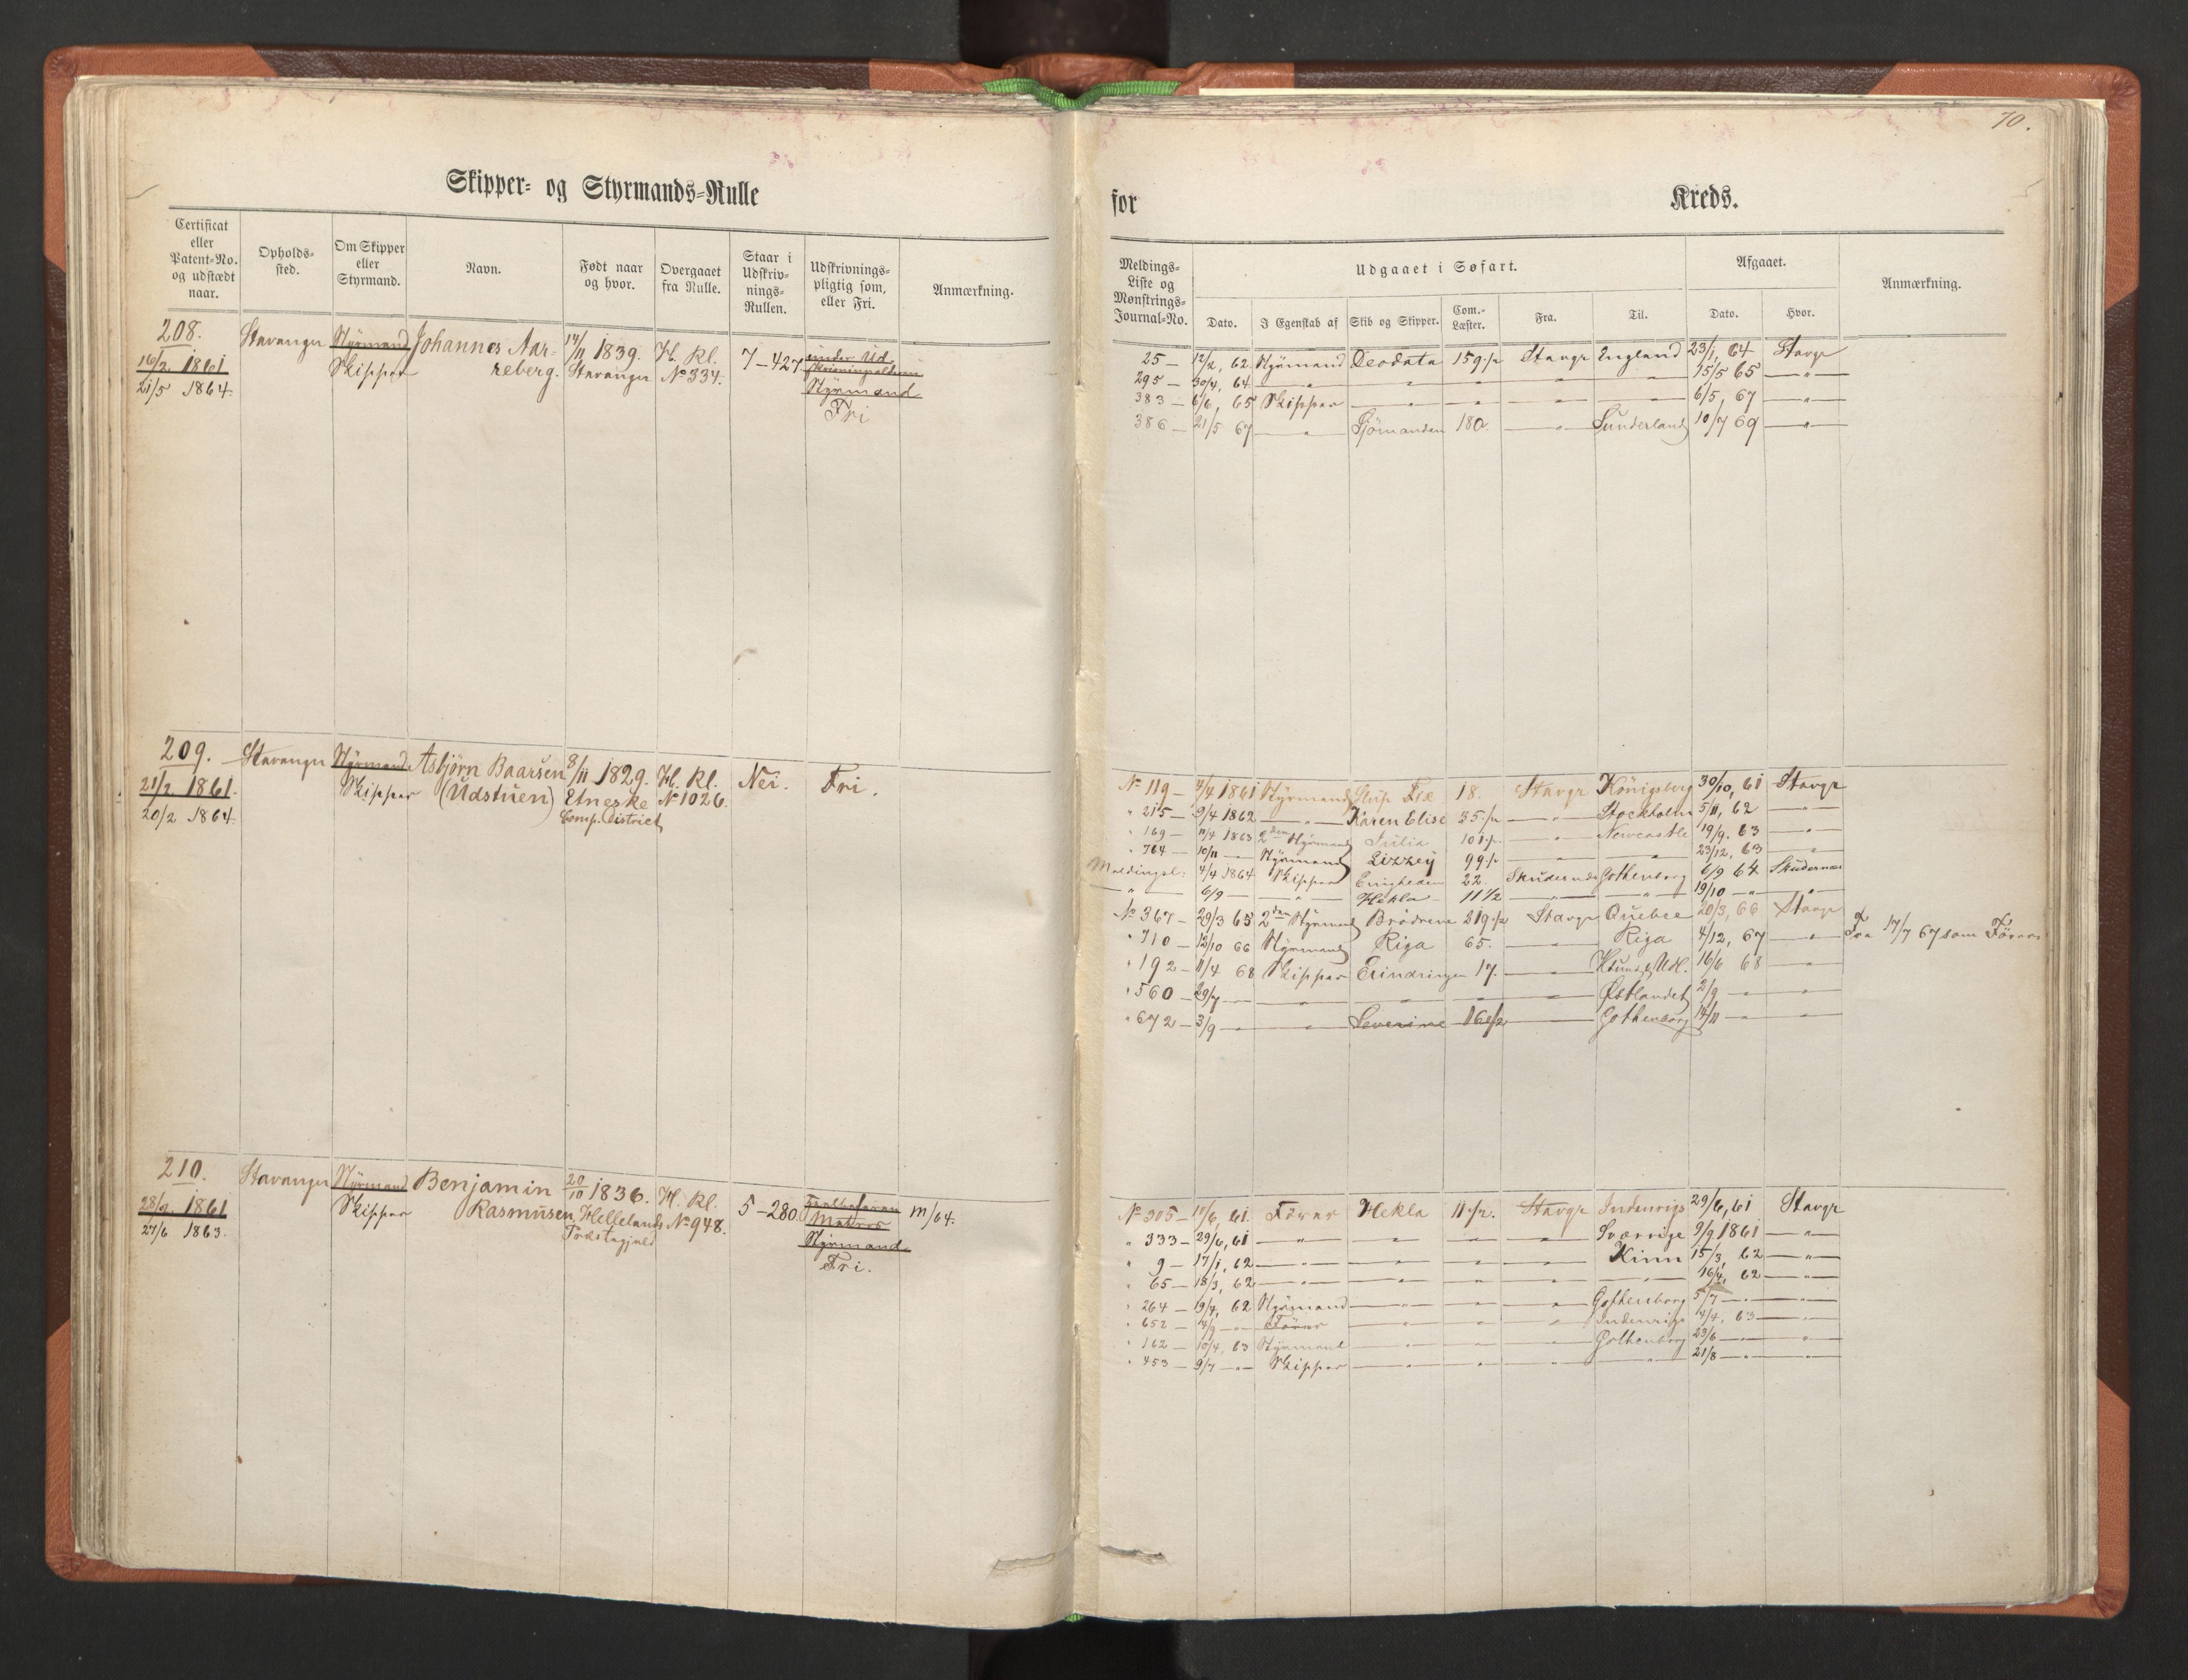 70.
Skipper- og Styrmands-Rulle
for Kreds.
Certificat eller Patent-No. og udstædt naar.
Opholds-sted.
Om Skipper eller Styrmand.
Navn.
Født naar og hvor.
Overgaaet fra Rulle.
Staar i Udskriv-nings-Rullen.
Udskrivnings-pligtig som, eller Fri.
Anmærkning.
Meldings-Liste og Mønstrings-Journal-No.
Udgaaet i Søfart.
Dato. I Egenskab af Skib og Skipper. Com.-Læster. Fra. Til.
Afgaaet.
Dato. Hvor.
Anmærkning.
208. Stavanger Styrmand Johannes Aar- 14/11 1839. H. Kl. 7–427. under Ud
16/2 1861 Skipper reberg. Stavanger No 334. skrivningsalderen
21/5 1864. Styrmand
Fri
25 — 12/2, 62 Styrmand Deodata 159 1/2 Stavgr England 23/1, 64 Stavgr
295 — 30/4, 64 — " — " " " " 15/5 65 — " —
383 — 6/6, 65 Skipper — " — " " " 6/5, 67 — " —
386 — 21/5 67 — " — Sjömanden 180. — " — Sunderland 10/7 69 — " —
209. Stavanger Styrmand Asbjörn Baarsen 8/11 1829. H. Kl. Nei. Fri.
21/2 1861. Skipper (Udstuen) Etneske No 1026.
20/2 1864. Comp. District
No 119 — 4/4 1861 Styrmand Slup Fix 18. Stavgr Königsberg 30/10, 61 Stavgr
" 215 — 9/4 1862 — " — Karen Elise 35 1/2 — " — Stockholm 5/11, 62 — " —
" 169 — 11/4 1863 2den Styrmand Julia 101 1/2 — " — Newcastle 19/9. 63 — " —
" 764 — 10/11 — Styrmand Lizzey 99 1/2 — " — " — 23/12, 63 — " —
Meldingsl: 4/4 1864 Skipper Enigheden 22. Skudesnæs Gothenborg 6/9 64 Skudesnæs
— " — 6/9 — — " — Hekla 11 1/2 — " — — " — 19/10 — " — — " —
No 367 — 29/3 65 2den Styrmand Brödrene 219 1/2 Stavgr Quebec 20/3, 66 Stavgr
" 710 — 12/10 66 Styrmand Riga 65. — " — Riga 4/12, 67 — " — Fra 17/7 67 som Förer
" 192 — 11/4 68 Skipper Erindringen 17. — " — 16/6 68 — " —
" 560 — 29/7 — — " — — " — — " — — " — Østlandet 2/9 — " — — " —
" 672 — 3/9 — " — — " — Severine 16 1/2 — " — Gothenborg 14/11 — " — — " —
210. Stavanger Styrmand Benjamin 20/10 1836. H. Kl. 5–280.
28/2 1861 Skipper Rasmusen Hellelands No 948. Matros m/64.
27/6 1863. Præstegjæld Styrmand
Fri.
No 305 — 11/6, 61. Förer Hekla 11 1/2. Stavgr Indenrigs 29/6, 61 Stavgr
" 333 — 29/6, 61 — " — — " — " — " — Sverrige 9/9 1861 — " —
" 9 — 17/1, 62 — " — — " — " — " — Kinn 15/3, 62 — " —
" 65 — 18/3, 62 — " — — " — " — " — — " — 16/4, 62 — " —
" 264 — 19/4, 62 Styrmand — " — " — " — Gothenborg 5/7 — " — — " —
" 652 — 14/9 — " — Förer — " — " — " — Indenrigs 4/4, 63 — " —
" 162 — 10/4, 63 Styrmand — " — " — " — Gothenborg 23/6 — " — — " —
" 453 — 9/7 — " — Skipper — " — " — " — — " — 21/8 — " — — " —